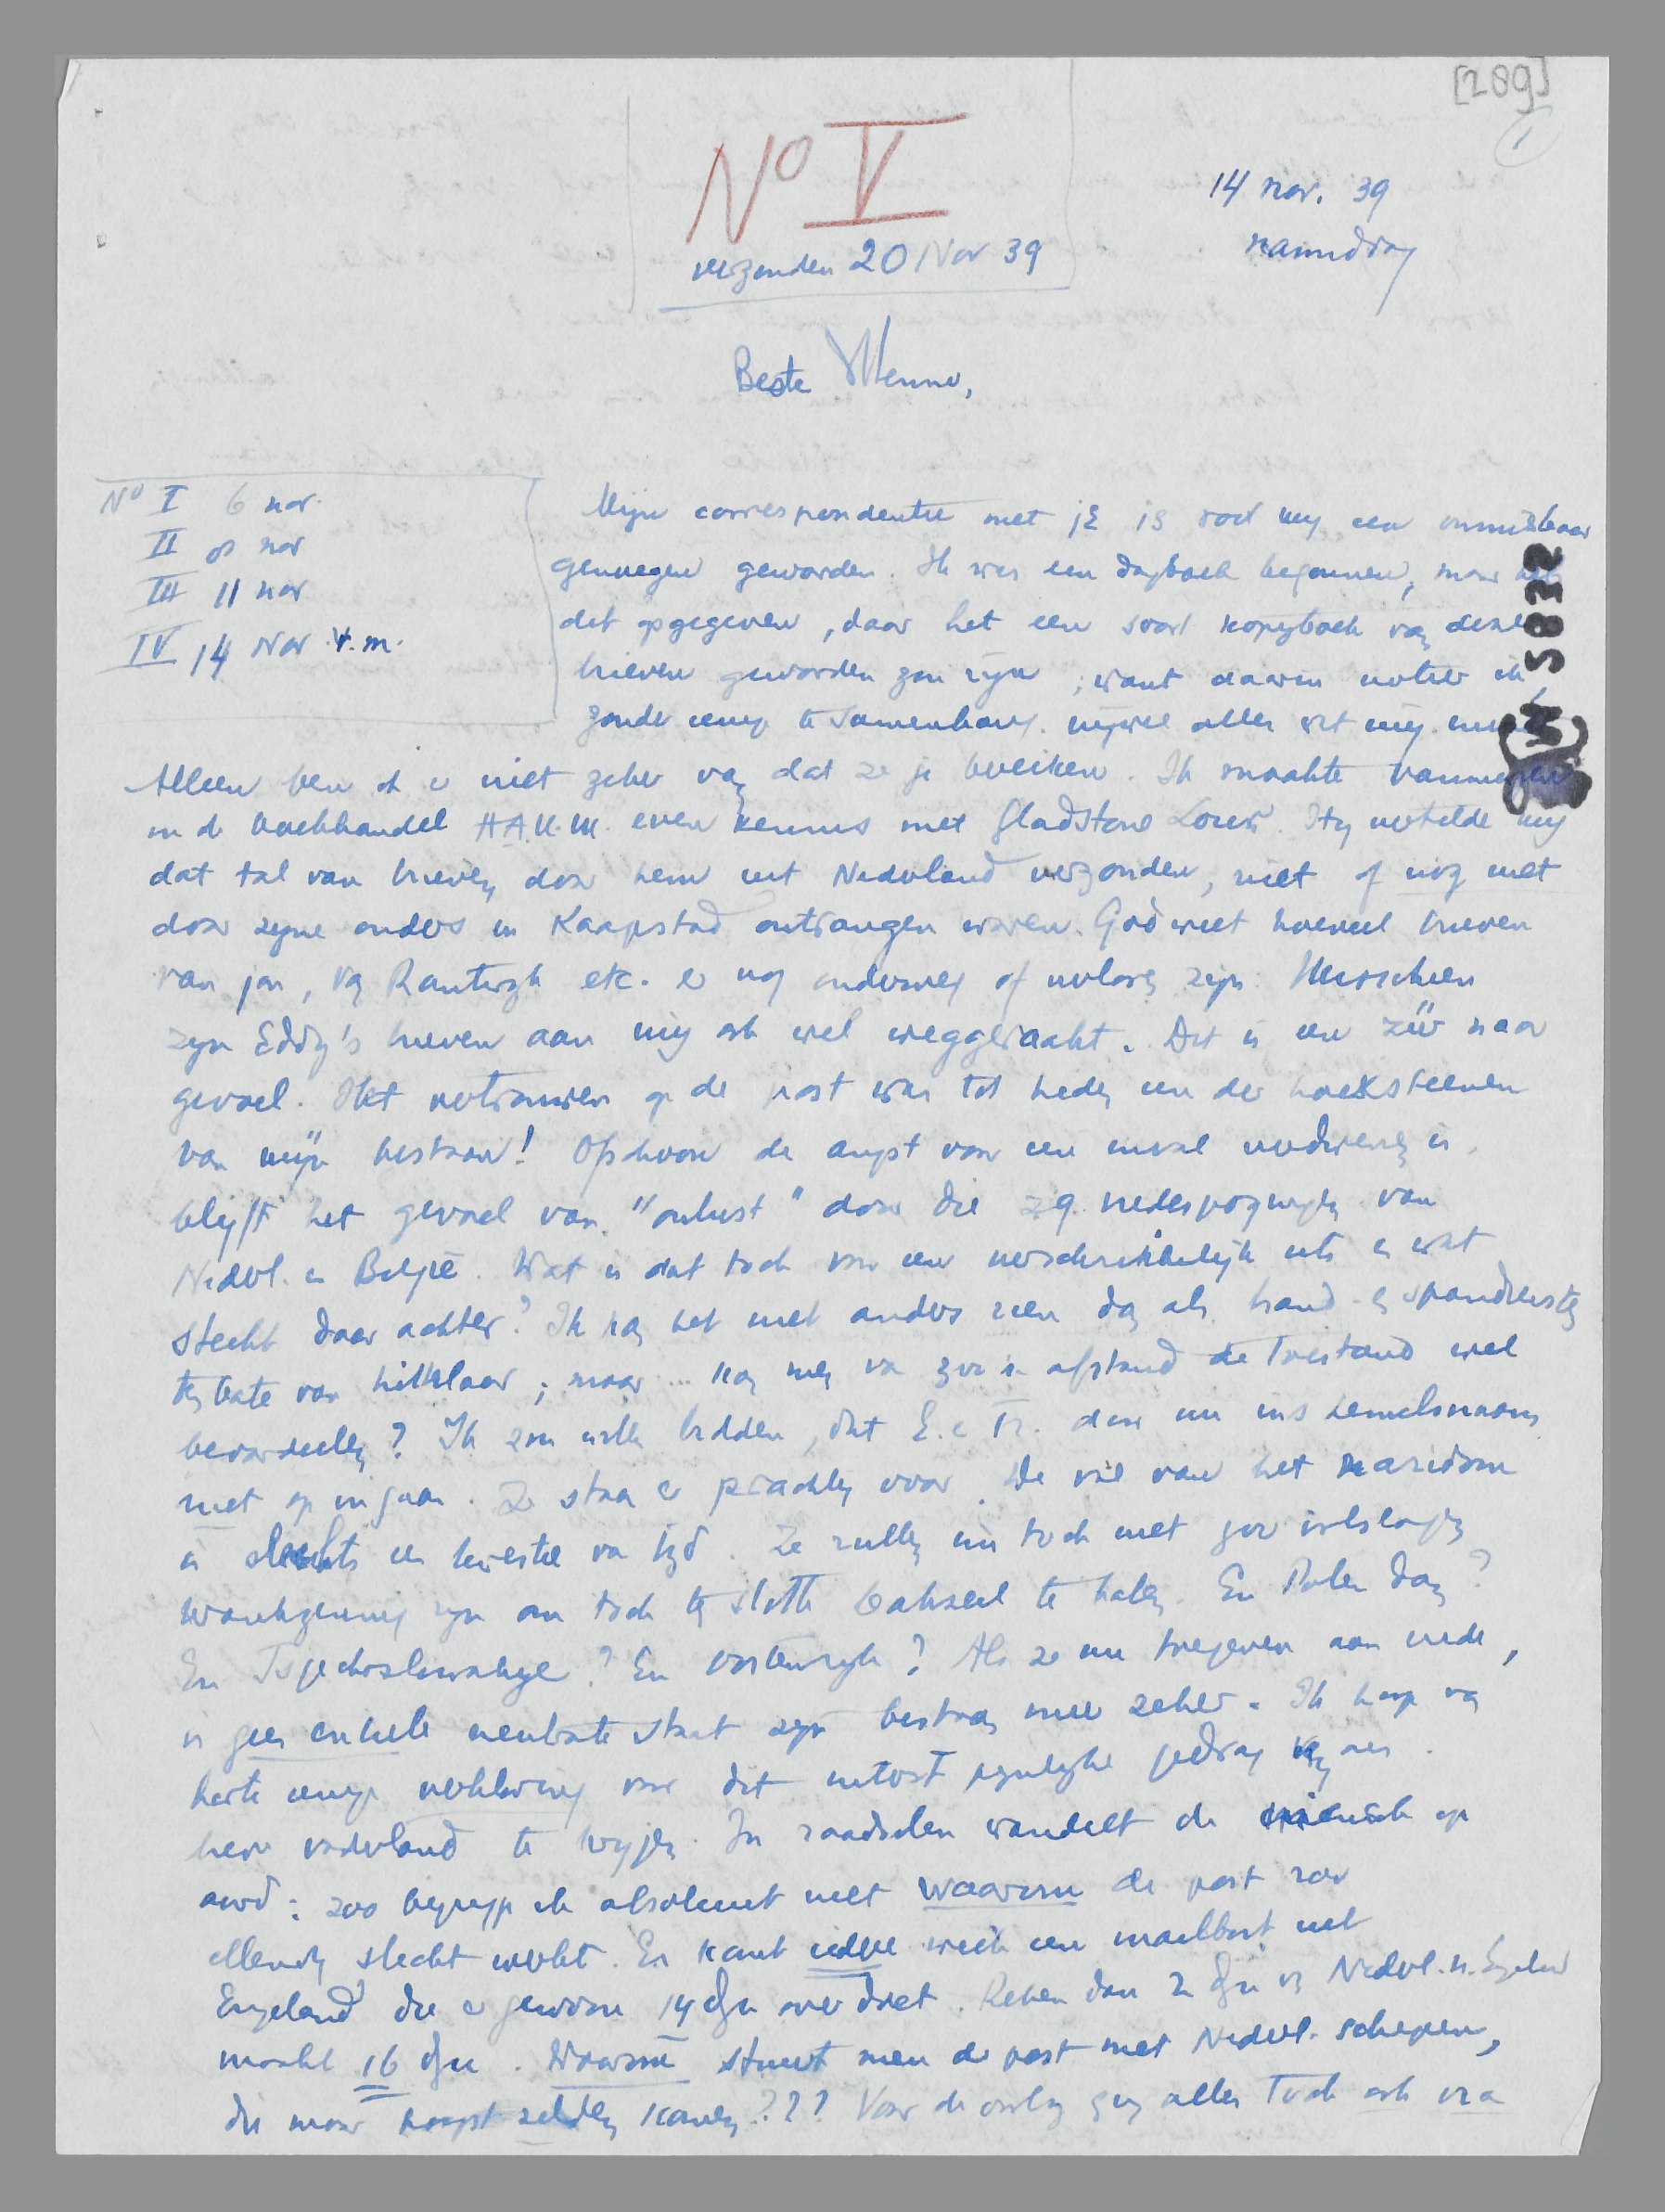 [289]
1
No V
14 nov. 39
namiddag
verzonden 20 Nov 39
Beste Menno,
No I 6 nov.
II 8 nov
III 11 nov
IV 14 Nov v.m.
Mijn correspondentie met je is voor mij een onmisbaar
genoegen geworden. Ik was een dagboek begonnen, maar heb
dat opgegeven, daar het een soort kopijboek van deze
brieven geworden zou zijn; want daarin noteer ik
zonder eenige samenhang vrijwel alles wat mij
Alleen ben ik er niet zeker van dat ze je bereiken. Ik maakte vanmorgen
in de boekhandel H.A.U.M. even kennis met Gladstone Louw. Hij vertelde mij
dat tal van brieven, door hem uit Nederland verzonden, niet of nog niet
door zijne ouders in Kaapstad ontvangen waren. God weet hoeveel brieven
van jou, van Rantwijk etc. er nog onderweg of verloren zijn. Misschien
zijn Eddy's brieven aan mij ook wel weggeraakt. Dit is een zéér naar
gevoel. Het vertrouwen op de post was tot heden een der hoeksteenen
van mijn bestaan! Ofschoon de angst voor een inval verdwenen is,
blijft het gevoel van "onlust" door die z.g. vredespogingen van
Nederl. en België. Wat is dat toch voor een verschrikkelijk iets en wat
steekt daar achter? Ik kan het niet anders zien dan als hand- en spandiensten
ten bate van hikklaar; maar ... kan men van zoo'n afstand de toestand wel
beoordeelen? Ik zou willen bidden, dat E. en Fr. daar nu in 's hemelsnaam
niet op ingaan. Ze staan er prachtig voor. De val van het naridom
is slechts een kwestie van tijd. Ze zullen nu toch niet zoo volslagen
krankzinnig zijn om toch ten slotte bakzeil te halen. En Polen dan?
En Tsjechoslowakije? En Oostenrijk? Als ze nu toegeven aan vrede,
is geen enkele neutrale staat zijn bestaan meer zeker. Ik hoop van
harte eenige verklaring voor dit uiterst pijnlijke gedrag van ons
lieve vaderland te krijgen. In raadselen wandelt de mensch op
aard: zoo begrijp ik absoluut niet waarom de post zoo
ellendig slecht werkt. Er komt iedere week een mailboot uit
Engeland die er gewoon 14 dgn over doet. Reken dan 2 dgn v. Nederl. n. Engeland
maakt 16 dgn. Waarom stuurt men de post met Nederl. schepen,
die maar hoogst zelden komen??? Voor de oorlog ging alles toch ook via
W 5832